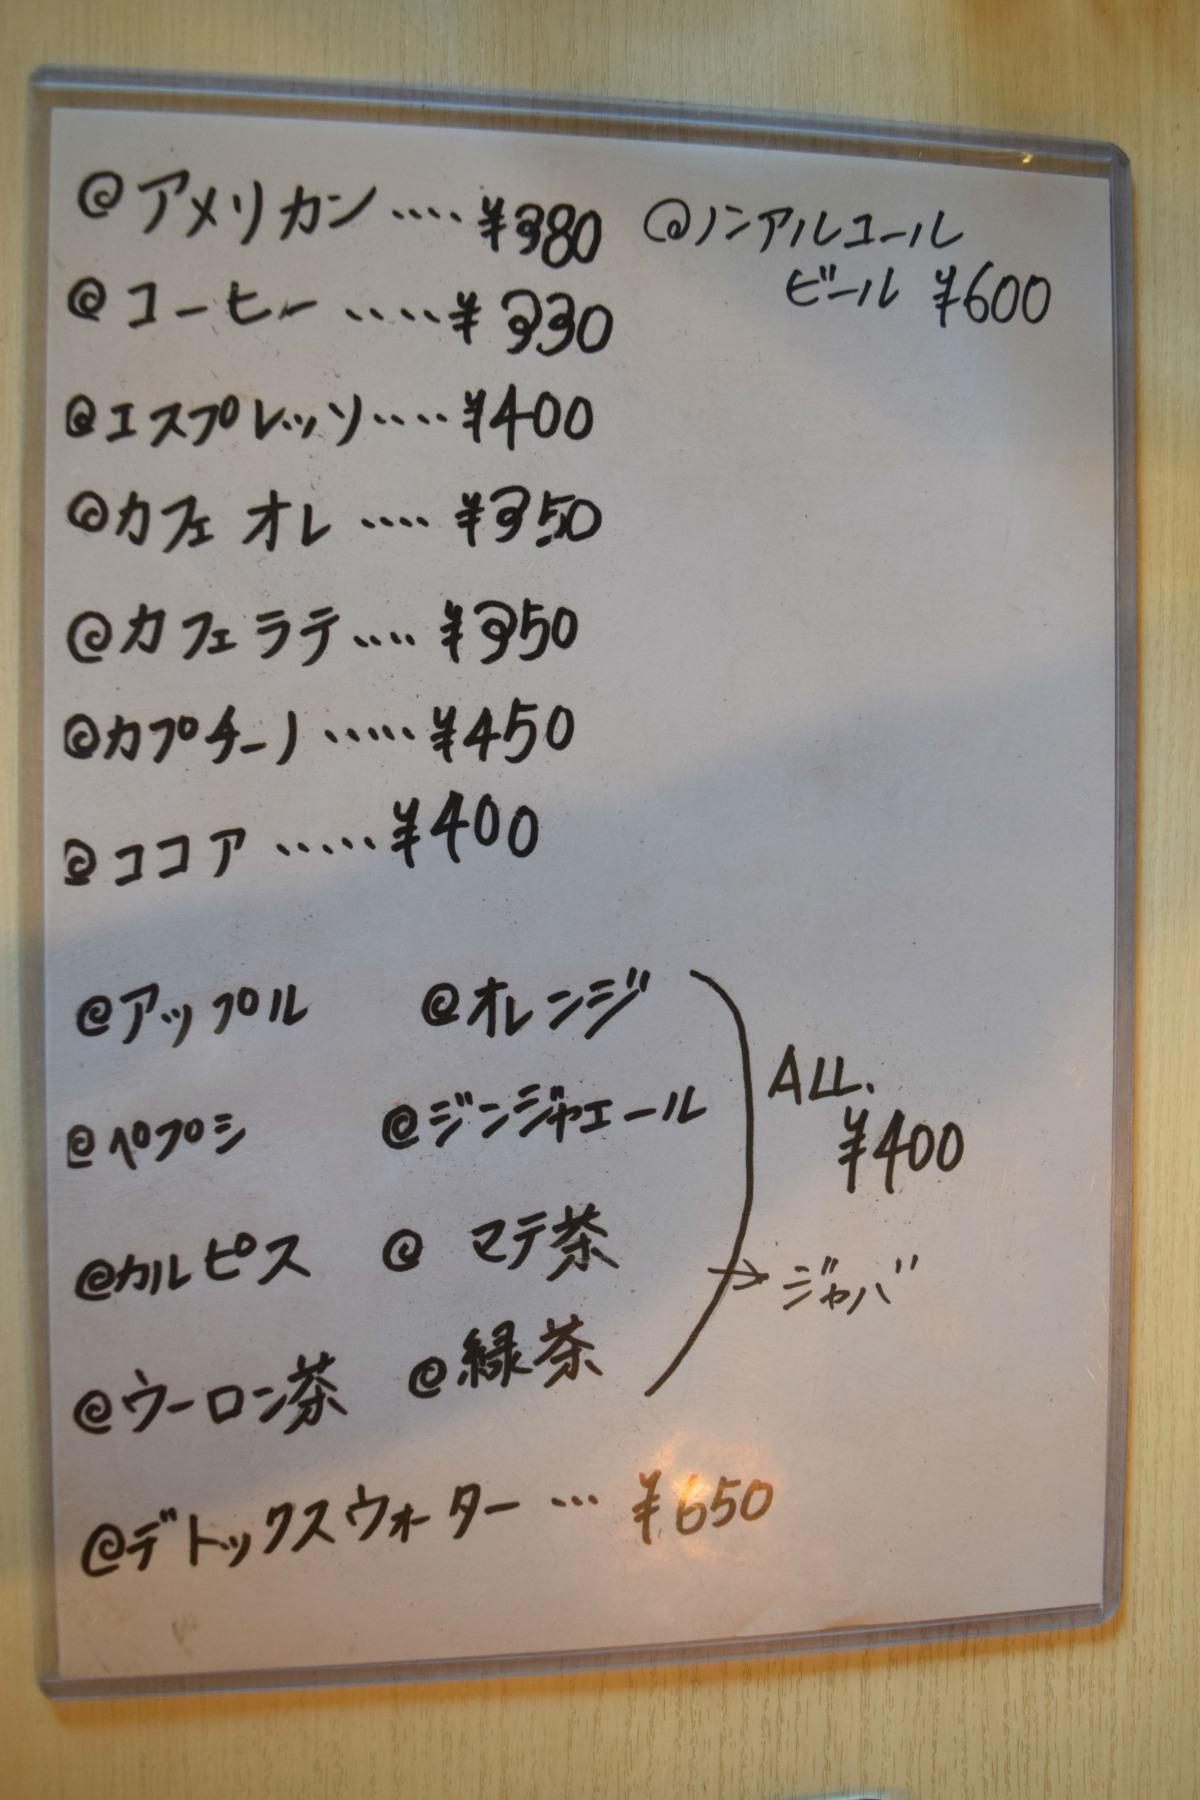 @アメリカン‥‥¥380
@コーヒー‥‥¥330
@エスプレッソ‥‥¥400
@カフェ オレ‥‥¥350
@カフェラテ‥‥¥350
@カプチーノ‥‥‥¥450
@ココア‥‥‥¥400
@ノンアルコール
ビール ¥600
@アップル @オレンジ
@ペプシ @ジンジャエール
@カルピス @マテ茶
@ウーロン茶 @緑茶
ALL.
¥400
→ジャバ
@デトックスウォーター … ¥650